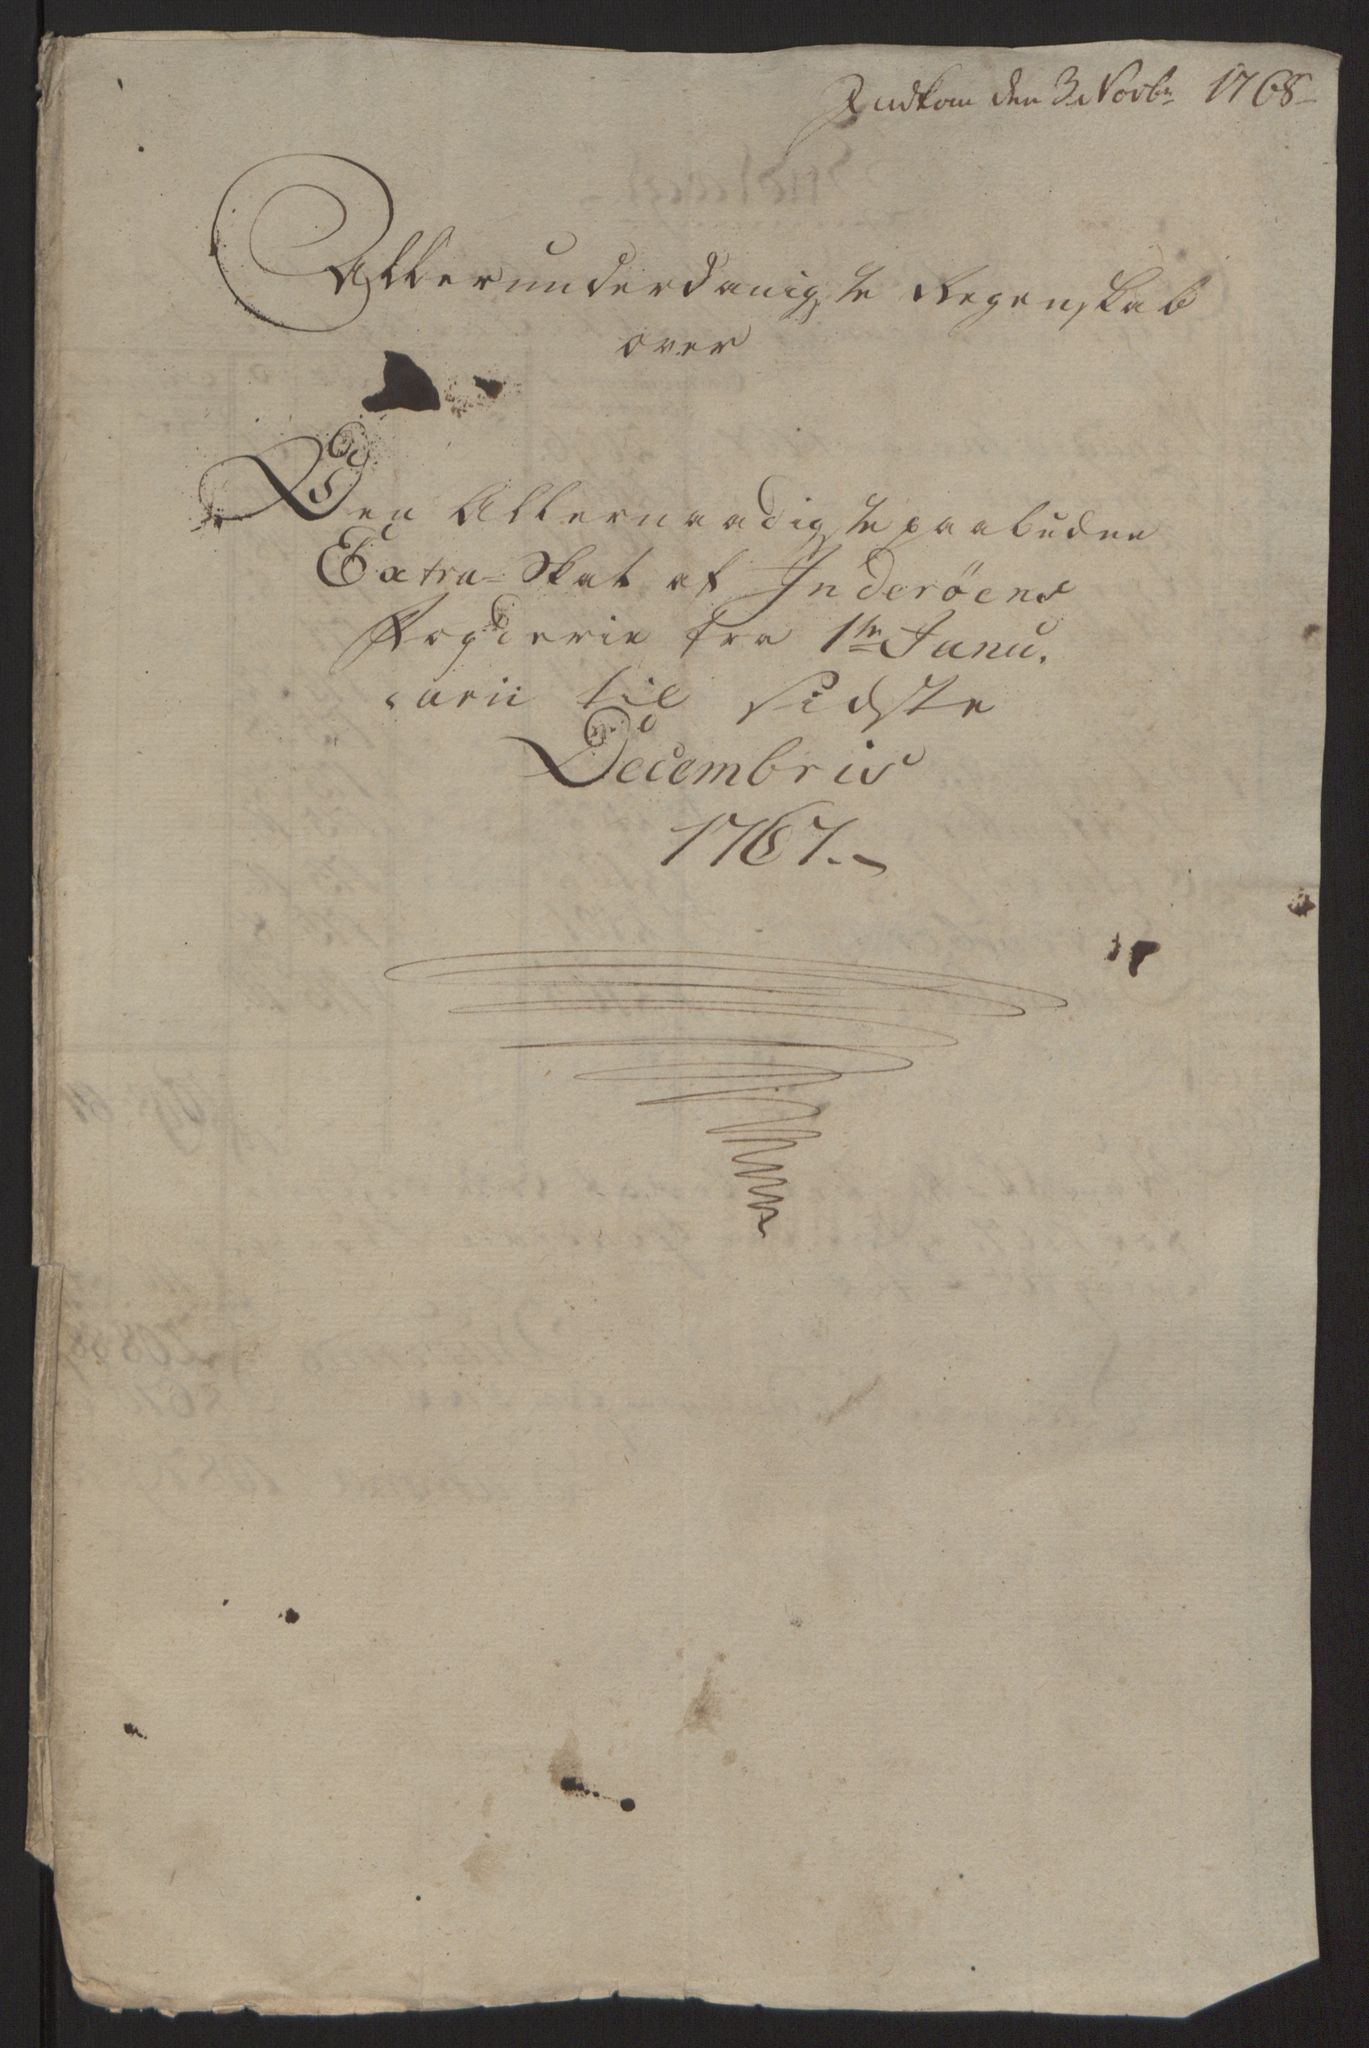 Indkom den 3 Novbr 1768
Allerunderdanigste Regenskab
over
Den Allernaadigste paabudne
Extra-Skat af Inderøens
Fogderie fra 1te Janu,
arii til Sidste
Decembris
1767.